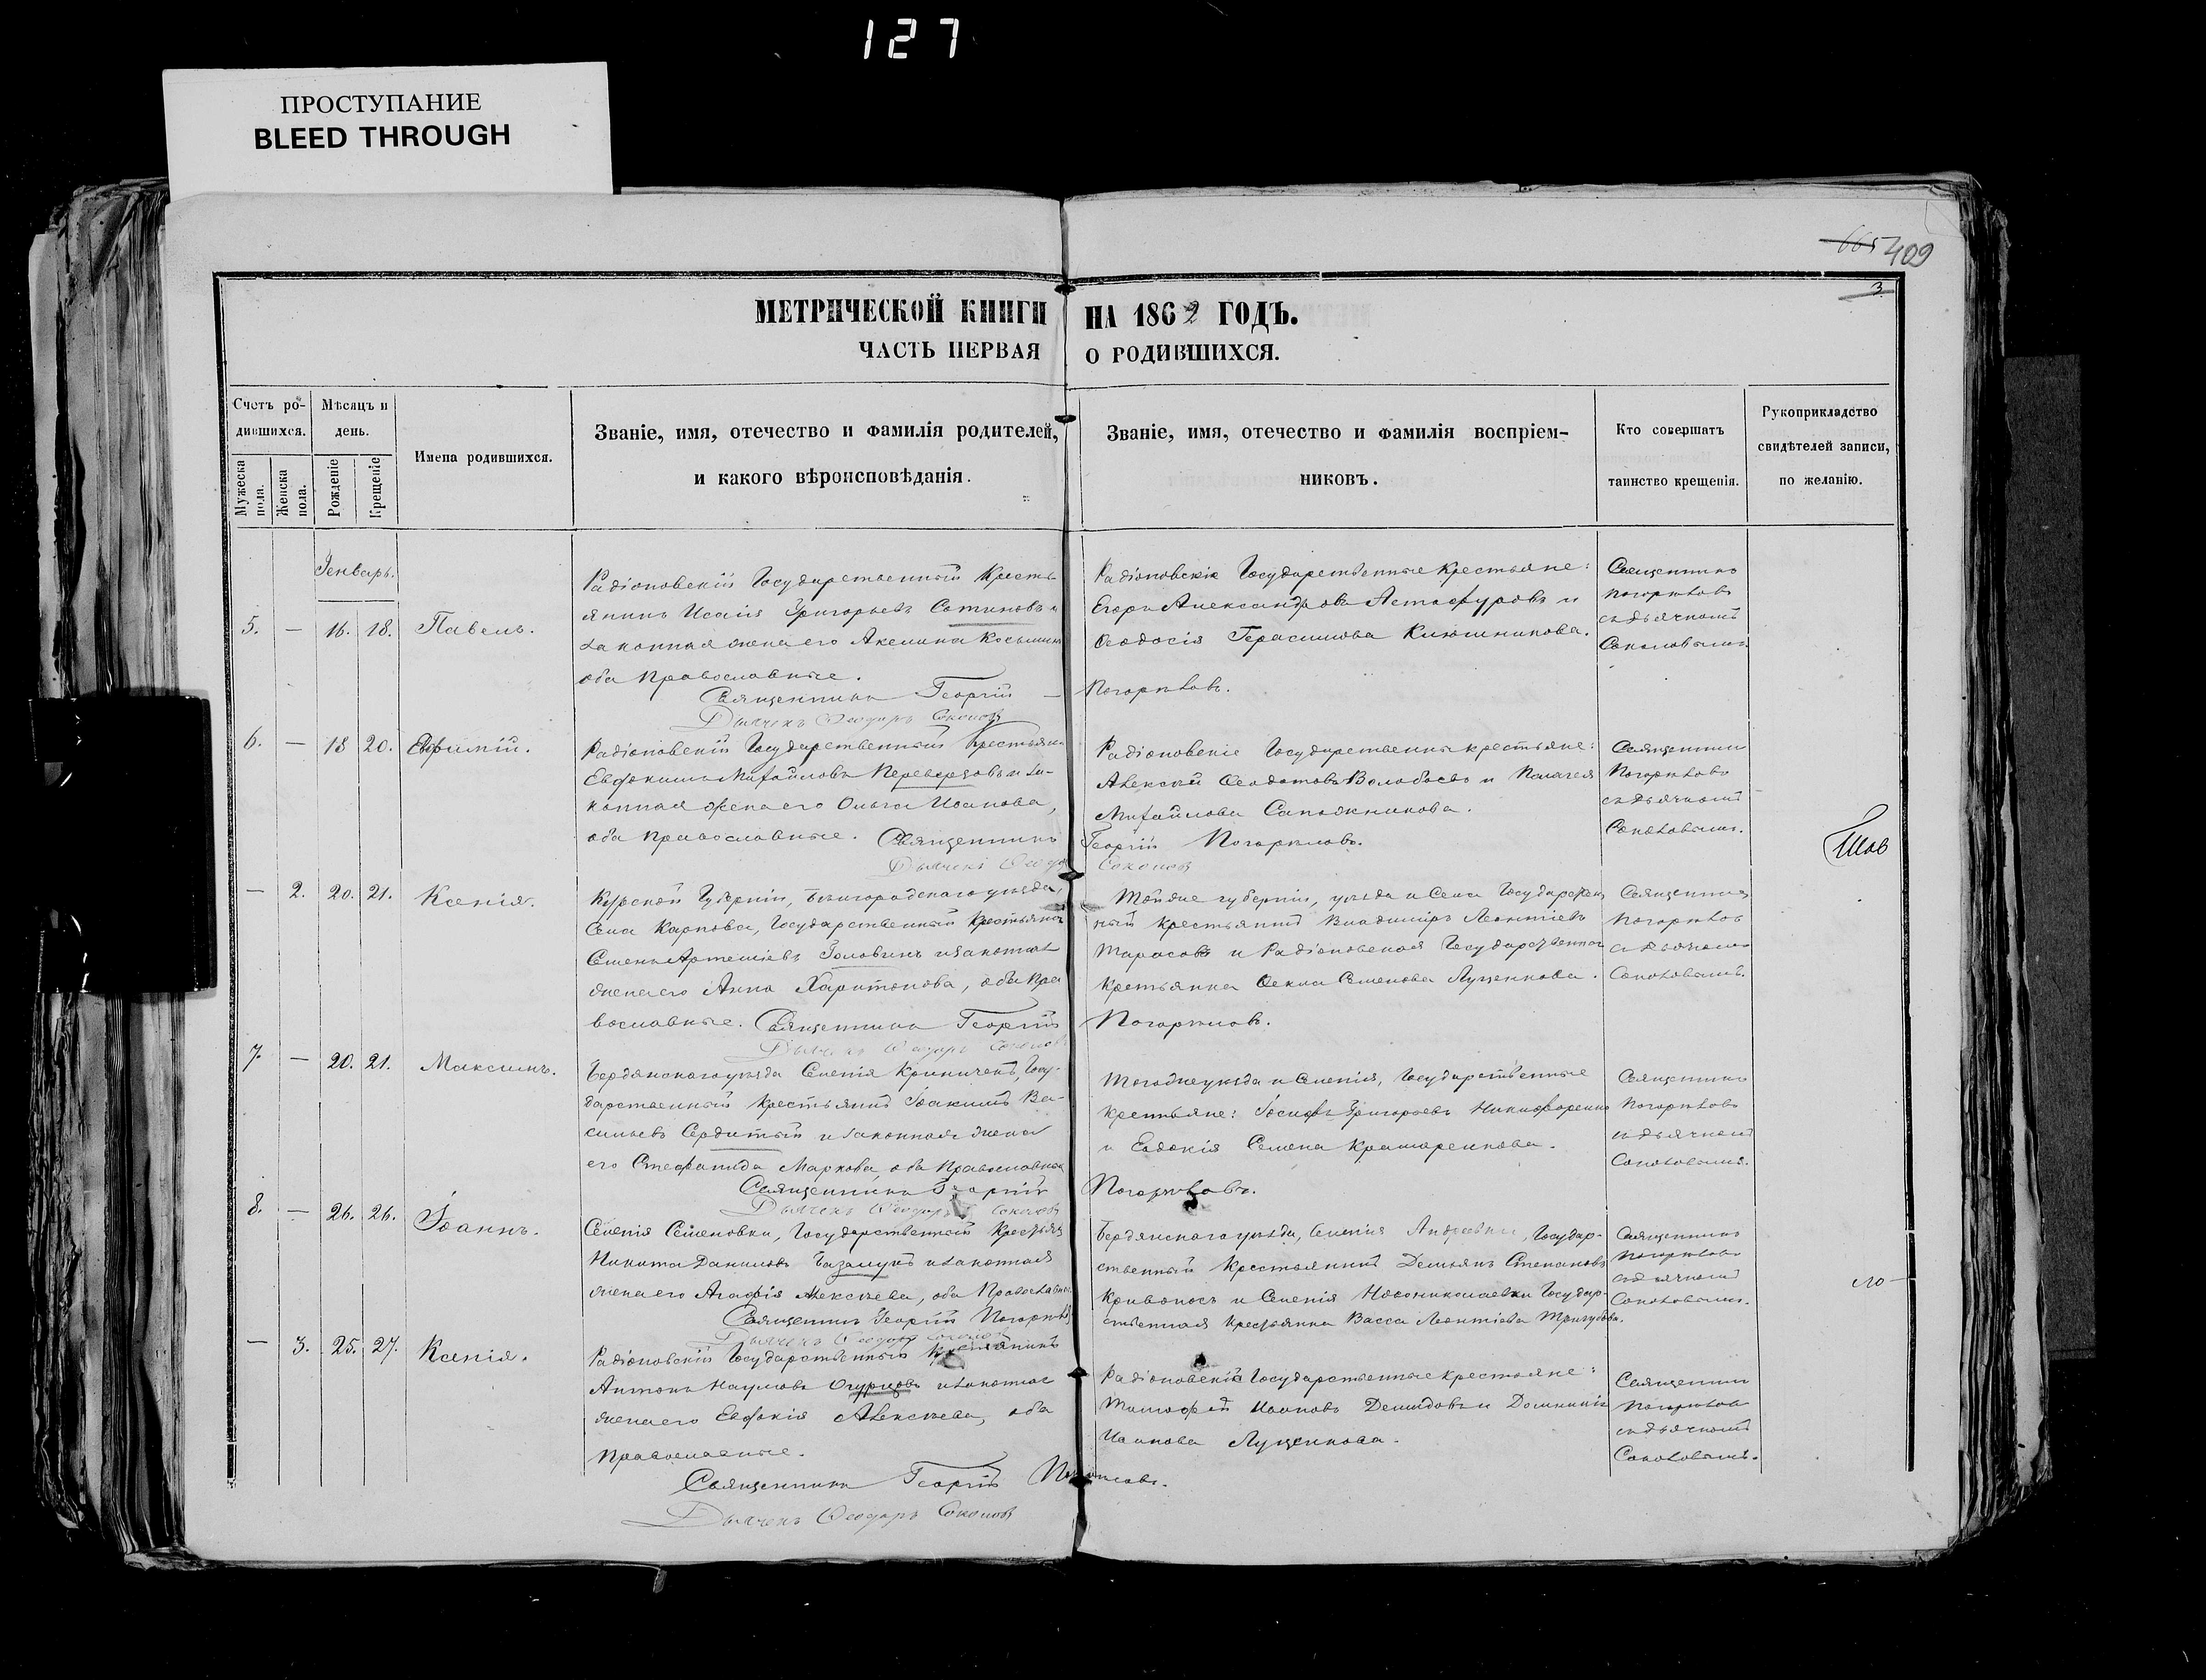 127
ПРОСТУПАНИЕ
BLEED THROUGH
665 409
3
МЕТРИЧЕСКОЙ КНИГИ НА 1862 ГОДЪ.
ЧАСТЬ ПЕРВАЯ О РОДИВШИХСЯ.
Счетъ ро-
дившихся.
Мужеска пола.
Женска пола.
Мѣсяцъ и
день.
Рожденіе
Крещеніе
Имена родившихся.
Званіе, имя, отечество и фамилія родителей,
и какого вѣроисповѣданія.
Званіе, имя, отечество и фамилія воспріем-
никовъ.
Кто совершатъ
таинство крещенія.
Рукоприкладство
свидѣтелей записи,
по желанію.
Генварь.
5. — 16. 18. Павелъ.
Радіоновскій Государственный кресть-
янинъ Исаія Григорьевъ Сотниковъ и
законная жена его Акелина Косьмина
оба Православные.
Радіоновскіе Государственные крестьяне:
Егоръ Александровъ Астафуровъ и
Ѳеодосія Герасимова Ключникова.
Священникъ
Погорѣловъ
съ дьячкомъ
Соколовымъ.
Священникъ Георгій Погорѣловъ.
Дьячекъ Ѳеодоръ Соколовъ
6. — 18 20. Евфимій.
Радіоновскій Государственный крестьянинъ
Евдокимъ Михайловъ Переверзовъ и за-
конная жена его Ольга Иванова,
оба православные.
Радіоновскіе Государственные крестьяне:
Алексѣй Ѳеодотовъ Волобоевъ и Пелагея
Михайлова Сапожникова.
Священникъ
Погорѣловъ
съ дьячкомъ
Соколовымъ.
Священникъ Георгій Погорѣловъ.
Дьячекъ Ѳеодоръ Соколовъ
— 2. 20. 21. Ксенія.
Курской Губерніи, Бѣлгородскаго уѣзда,
Села Карпова, Государственный крестьянинъ
Семенъ Артеміевъ Головинъ и законная
жена его Анна Харитонова, оба Пра
вославные.
Той же губерніи, уѣзда и Села Государствен
ный крестьянинъ Владиміръ Леонтіевъ
Тарасовъ и Радіоновская Государственная
крестьянка Ѳекла Семенова Луценкова.
Священникъ
Погорѣловъ
съ дьячкомъ
Соколовымъ.
Священникъ Георгій Погорѣловъ.
Дьячекъ Ѳеодоръ Соколовъ
7. — 20. 21. Максимъ.
Бердянскаго уѣзда Селенія Криничекъ, Госу-
дарственный крестьянинъ Іоакимъ Ва-
сильевъ Сердитый и законная жена
его Стефанида Маркова оба Православные
Тогоже уѣзда и Селенія, Государственные
крестьяне: Іосифъ Григорьевъ Никифоренко
и Евдокія Семена Крамаренкова.
Священникъ
Погорѣловъ
съ дьячкомъ
Соколовымъ.
Священникъ Георгій Погорѣловъ.
Дьячекъ Ѳеодоръ Соколовъ
8. — 26. 26. Іоаннъ.
Селенія Семеновки, Государственный крестьян
Никита Даниловъ и законная
жена его Агафія Алексѣева, оба Православные
Бердянскаго уѣзда, Селенія Андреевки, Государ-
ственный крестьянинъ Демьянъ Степановъ
Кривоносъ и Селенія Новониколаевки Государ-
ственная крестьянка Васса Леонтіева
Священникъ
Погорѣловъ
съ дьячкомъ
Соколовымъ.
Священникъ Георгій Погорѣловъ
Дьячекъ Ѳеодоръ Соколовъ
— 3. 25. 27. Ксенія.
Радіоновскій Государственный крестьянинъ
Антонъ Наумовъ Огурцовъ и законная
жена его Евдокія Алексѣева, оба
Православные.
Радіоновскіе Государственные крестьяне:
Тимофей Ивановъ Демидовъ и Домникія
Иванова Луценкова.
Священникъ
Погорѣловъ
съ дьячкомъ
Соколовымъ.
Священникъ Георгій Погорѣловъ.
Дьячекъ Ѳеодоръ Соколовъ